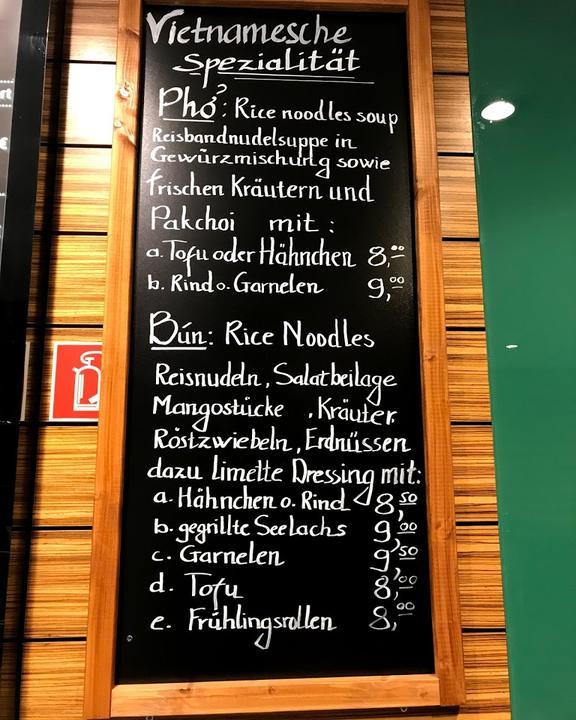 Vietnamesche
Spezialität
Phở: Rice noodles soup
Reisbandnudelsuppe in
Gewürzmischung sowie
frischen Kräutern und
Pakchoi mit:
a. Tofu oder Hähnchen 8,00
b. Rind o. Garnelen 9,00
Bún: Rice Noodles
Reisnudeln, Salatbeilage
Mangostücke , Kräuter,
Röstzwiebeln, Erdnüssen
dazu Limette Dressing mit:
a. Hähnchen o. Rind 8,50
b. gegrillte Seelachs 9,00
c. Garnelen 9,50
d. Tofu 8,00
e. Frühlingsrollen 8,00